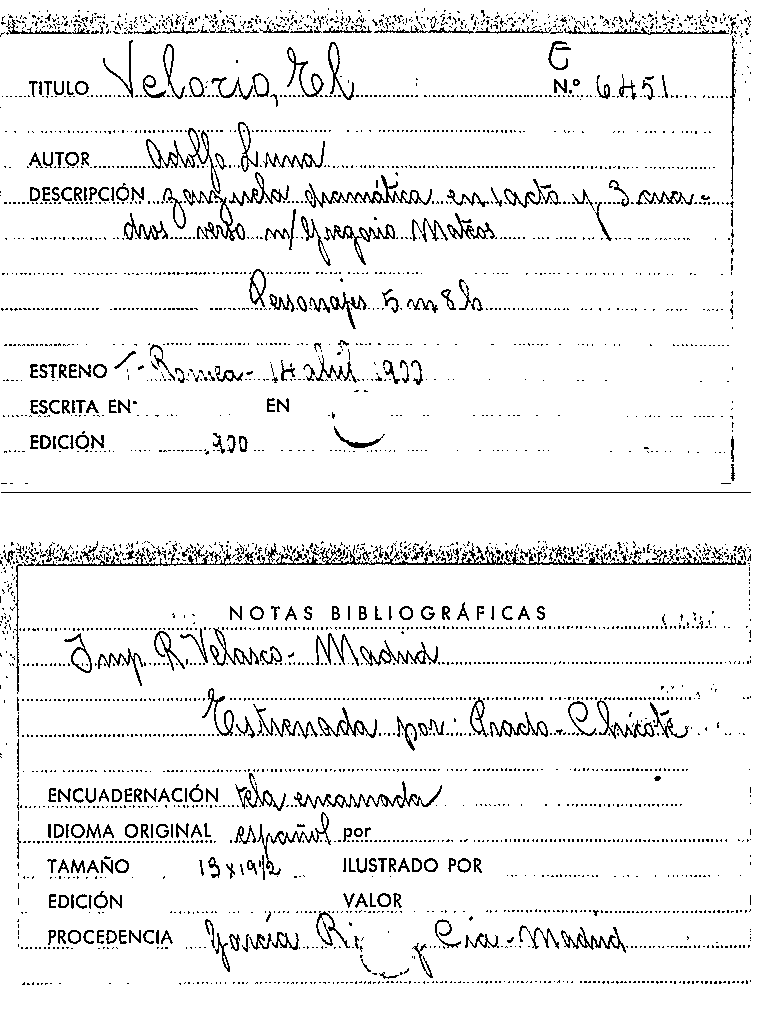 E
TITULO Velorio, El N.º 6451
AUTOR Adolfo Luna
DESCRIPCIÓN zarzuela dramática en 1 acto y 3 cua-
dros verso m/ Gregorio Mateos
Personajes 5 m 8 h
ESTRENO T- Romea- 14 abril 1900
ESCRITA EN EN
EDICIÓN 1900
NOTAS BIBLIOGRÁFICAS
Imp. R. Velasco- Madrid
Estrenada por: Prado-Chicote
ENCUADERNACIÓN tela encarnada
IDIOMA ORIGINAL español por
TAMAÑO 13 x 19 1/2 ILUSTRADO POR
EDICIÓN VALOR
PROCEDENCIA García y Cia-Madrid